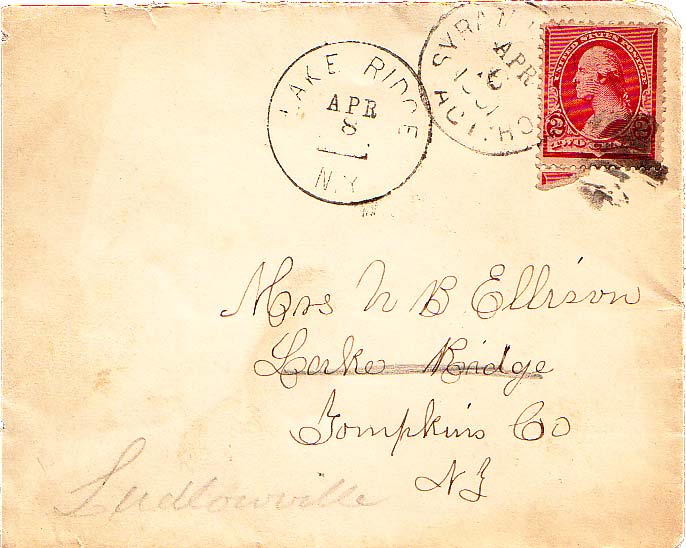 LAKE RIDGE
APR
8
N.Y.
APR
UNITED STATES POSTAGE
2 2
TWO CENTS
Mrs N B Ellison
Lake Ridge
Tompkins Co
NY
Ludlowville